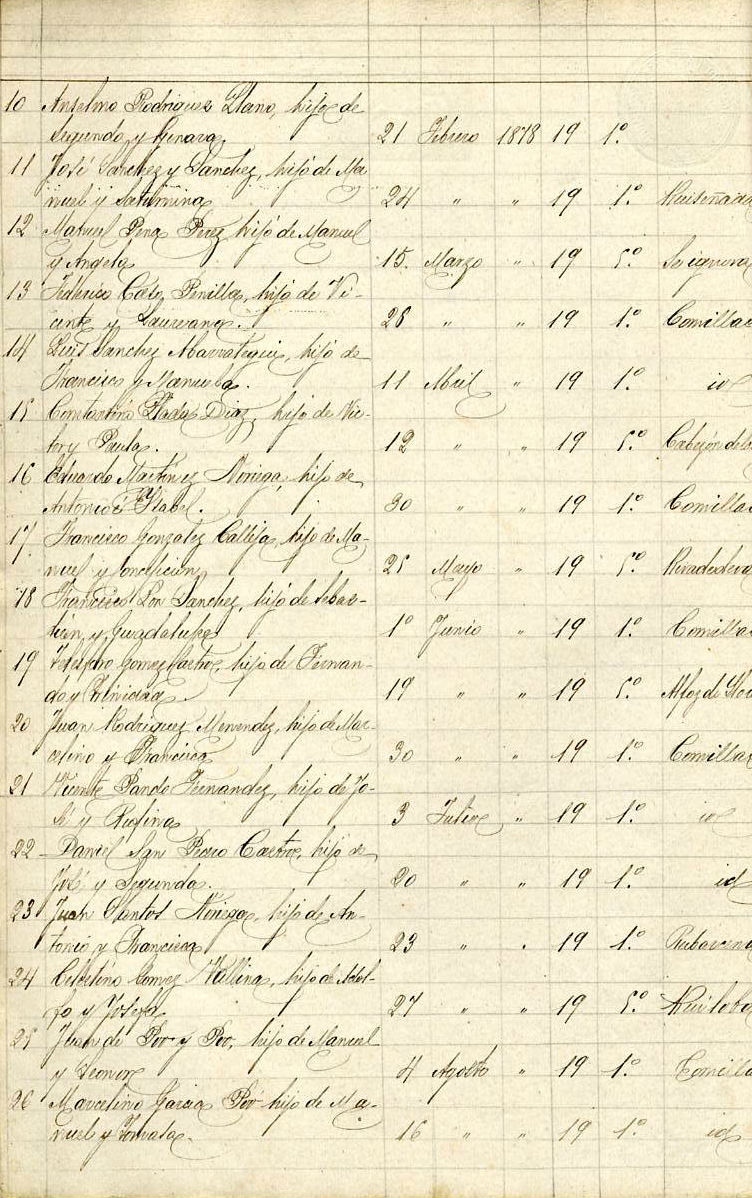 10 Anselmo Rodriguez Llano, hijo de
Segundo y Genara. 21 Febrero 1878 19 1.º
11 José Sanchez y Sanchez, hijo de Ma-
nuel y Saturnina 24 " " 19 1.º Ruiseñada
12 Manuel Pena Perez hijo de Manuel
y Angela 15. Marzo " 19 5.º
13 Federico Cos Penilla, hijo de Vi-
cente y Laureana. 28 " " 19 1.º Comillas
14 Luis Sanchez Marrategui, hijo de
Francisco y Manuela. 11 Abril " 19 1.º id
15 Constantino Diaz, hijo de Vic-
tor y Paula. 12 " " 19 5.º Cabezón de
16 Eduardo Martinez Noriega, hijo de
Antonio é Ysabel. 30 " " 19 1.º Comillas
17 Francisco Gonzalez Calleja, hijo de Ma-
nuel y Concepcion 25 Mayo " 19 5.º Rivadedeva
18 Francisco Lon Sanchez, hijo de Sebas-
tian, y Guadalupe 1.º Junio " 19 1.º Comillas
19 Telesforo Gomez Castro, hijo de Fernan-
do y Trinidad. 19 " " 19 5.º Alfoz de Llo
20 Juan Rodriguez Menendez, hijo de Mar-
celino y Francisca 30 " " 19 1.º Comillas
21 Vicente Pando Fernandez, hijo de Jo-
sé y Rufina 3 Julio " 19 1.º id
22 Daniel San Pedro Castro, hijo de
José y Segunda. 20 " " 19 1.º id
23 Juan Santos Noriega, hijo de An-
tonio y Francisca 23 " " 19 1.º
24 Celestino Gomez Vallina, hijo de Adol-
fo y Josefa 27 " " 19 5.º Ruiloba
25 Juan de Poo y Poo, hijo de Manuel
y Leonor 4 Agosto " 19 1.º Comilla
26 Marcelino Garcia Poo hijo de Ma-
nuel y Tomasa. 16 " " 19 1.º id